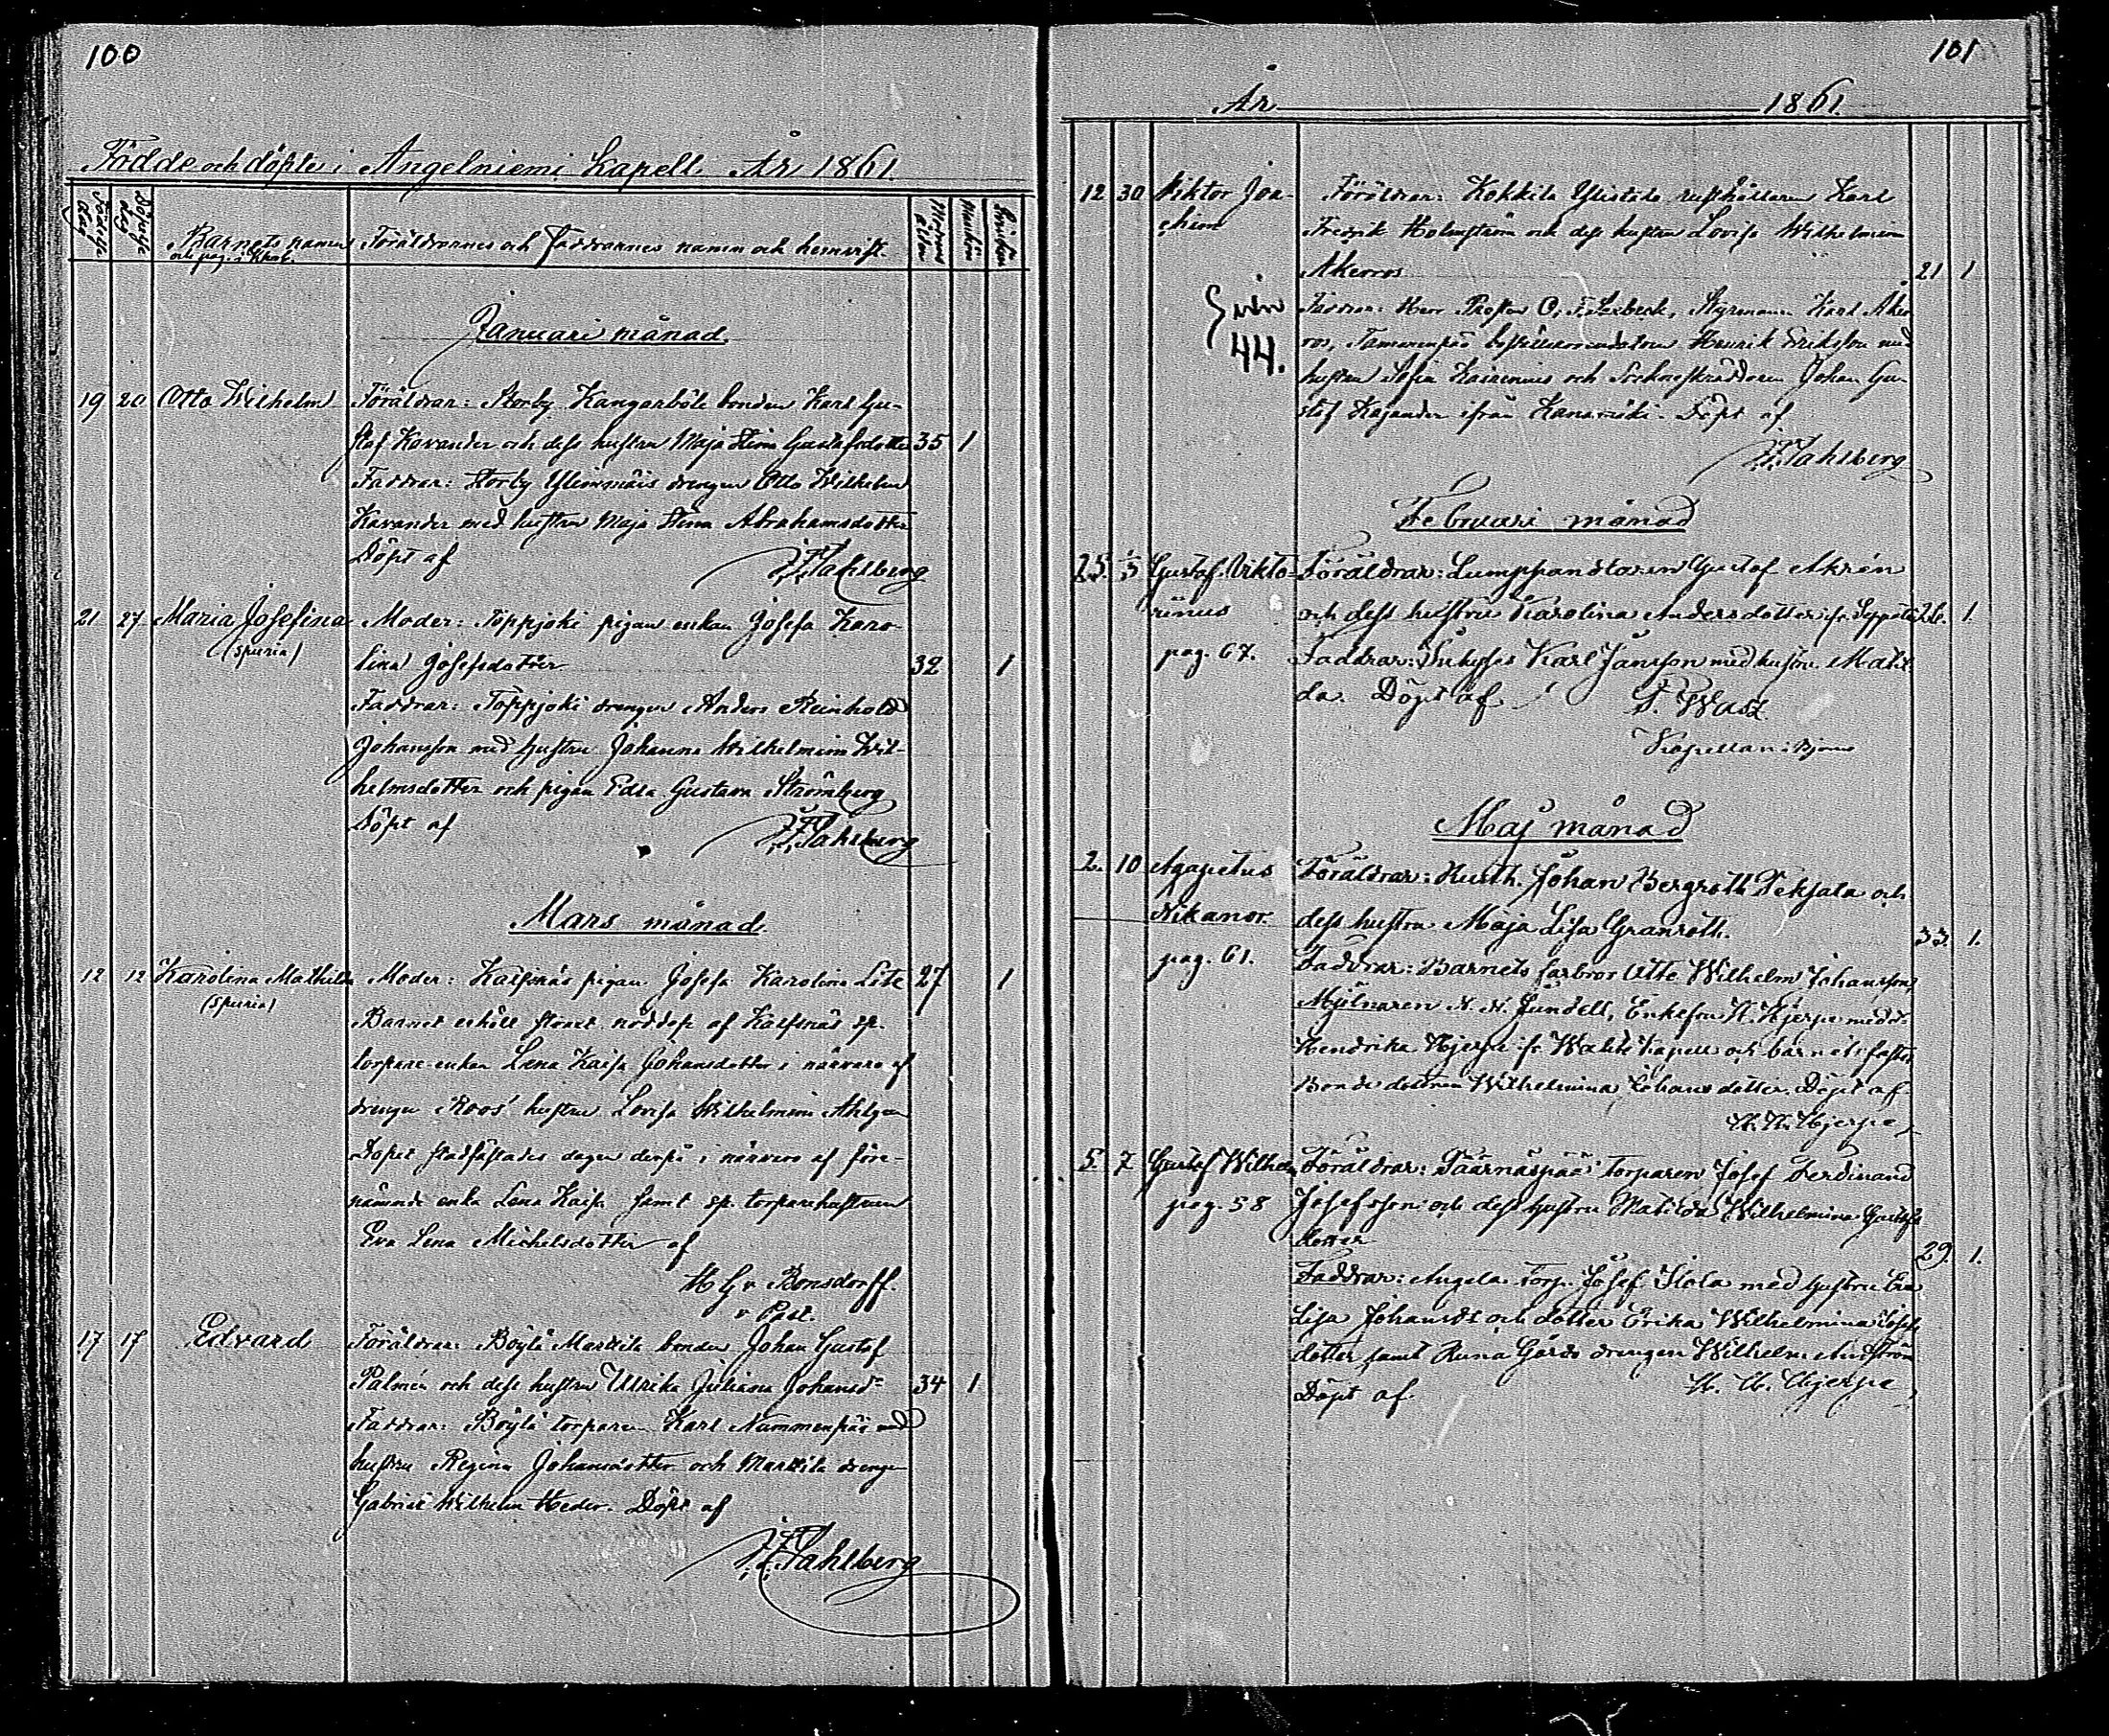 100
Födde och döpte i Angelniemi Kapell År 1861
Födelse dag
Döpelse dag
Barnets namn
och pag. i
Föräldrarnes och Faddrarnes namn och hemvist.
Modrens ålder
Mankön
Qvinkön
Januari månad.
19 20 Otto Wilhelm Föräldrar: Storby Kangarböle bonden Karl Gu-
staf Kavander och dess hustru Maja Stina Gustafsdotter 35 1
Faddrar: Storby drengen Otto Wilhelm
Kavander med hustru Maja Stina Abrahamsdotter
Döpt af
Tahlberg
21 27 Maria Josefina Moder: Töppjoki pigan enkan Josefa Karo-
(spuria)
lina Josefsdotter 32 1
Faddrar: Töppjoki drengen Anders Reinhold
Johansson med hustru Johanna Wilhelmina Wil-
helmsdotter och pigan Edla Gustava Strömberg
Döpt af
Tahlberg
Mars månad.
12 12 Karolina Mathilda Moder: Kalfsnäs pigan Josefa Karolina 27 1
(spuria)
Barnet erhöll nöddop af Kalfsnäs sp.
torpare enkan Lena Kaisa Johansdotter i närvaro af
drengen Roos' hustru Lovisa Wilhelmina Ahlgren
Dopet stadfästades dagen derpå i närvaro af före-
nämnde enka Lena Kaisa samt sp. torparehustrun
Eva Lena Michelsdotter af
v Bonsdorff.
v Past.
17 17 Edvard Föräldrar: Böylä Markila bonden Johan Gustaf
Palmén och dess hustru Ulrika Juliana Johansdr 34 1
Faddrar: Böylä torparen Karl Nummenpää med
hustru Regina Johansdotter och Markila dreng
Gabriel Wilhelm Heder. Döpt af
Tahlberg
101
År 1861.
12 30 Viktor Joa- Föräldrar: Kokkila Ylistalo rusthållaren Karl
chim
Fredrik Holmström och dess hustru Lovisa Wilhelmina
Akerros 21 1
44.
Faddrar: Herr Styrmann Karl Aker
ros, Henrik Eriksson med
hustru Sofia och Johan Gu-
staf Kajander ifrån Döpt af
Tahlberg
Februari månad
25. Gustaf Vikto- Föräldrar: Gustaf Akrén
rinus och dess hustru Karolina Andersdotter 1.
pag. 67. Faddrar: Karl Jansson med hustru Matil
da. Döpt af Wasz
Kapellan i Bjerno
Maj månad
2. 10 Agapetus Föräldrar: Rusth. Johan Bergroth Pekjala och
Nikanor. dess hustru Maja Lisa Granroth. 33. 1.
pag. 61. Faddrar: Barnets farbror Otto Wilhelm Johansson,
Mjölnaren N. N. Hjerpe med dr
Hendrika Hjerpe fr kapell och barnets faster,
Bonde dottren Wilhelmina Johans dotter. Döpt af
Hjerpe
5. 7 Gustaf Wilhelm Föräldrar: Päärnäspää Torparen Josef Ferdinand
pag. 58 Josefsson och dess hustru Matilda Wilhelmina Gustafs
dotter 29. 1.
Faddrar: Angela Torp. Josef Isola med hustru Eva
Lisa Johansdr och dotter Erika Wilhelmina Josefs
dotter samt Runa Gårds drengen Wilhelm
Döpt af Hjerpe